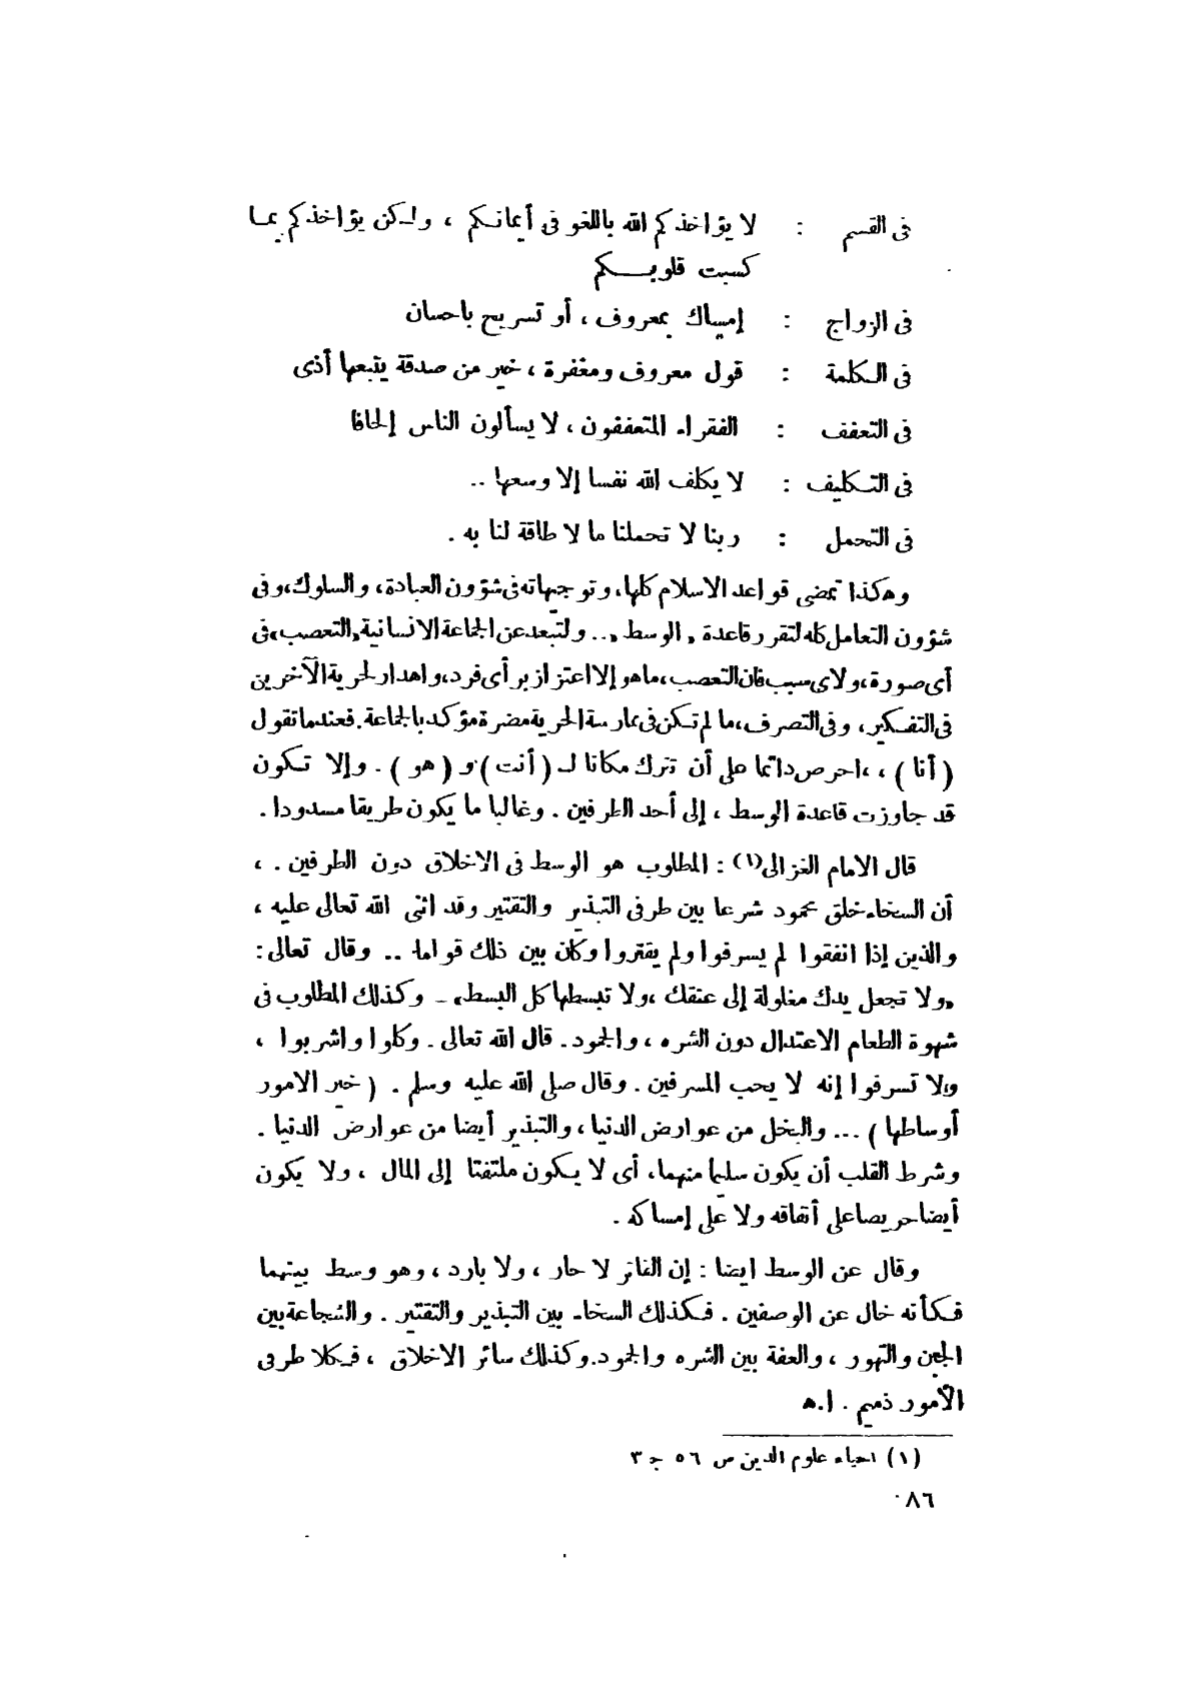 فى القسم : لا يؤاخذكم الله باللغو فى أيمانكم ، ولكن يؤاخذكم بما
كسبت قلوبكم
فى الزواج : إمساك بمعروف ، أو تسريح باحسان
فى الكلمة : قول معروف ومغفرة ، خير من صدقة يتبعها أذى
فى التعفف : الفقراء المتعففون ، لا يسألون الناس إلحافا
فى التكليف : لا يكلف الله نفسا إلا وسعها ..
فى التحمل : ربنا لا تحملنا ما لا طاقة لنا به .
وهكذا تمضى قواعد الاسلام كلها، وتوجيهاته فى شؤون العبادة، والسلوك، وفى
شؤون التعامل كله لتقرر قاعدة « الوسط » .. ولتبعد عن الجماعة الانسانية «التعصب» فى
أى صورة، ولاى سبب فان التعصب، ما هو إلا اعتزاز برأى فرد، واهدار لحرية الآخرين
فى التفكير، وفى التصرف، ما لم تكن فى ممارسة الحرية مضرة مؤكد بالجماعة. فعندما تقول
(أنا) ، ،احرص دائما على أن تترك مكانا لـ (أنت) و (هو) . وإلا تكون
قد جاوزت قاعدة الوسط ، إلى أحد الطرفين . وغالبا ما يكون طريقا مسدودا .
قال الامام الغزالى(١) : المطلوب هو الوسط فى الاخلاق دون الطرفين . ،
أن السخاء خلق محمود شرعا بين طرفى التبذير والتقتير وقد اثنى الله تعالى عليه ،
والذين إذا انفقوا لم يسرفوا ولم يقتروا وكان بين ذلك قواما .. وقال تعالى :
«ولا تجعل يدك مغلولة إلى عنقك ،ولا تبسطها كل البسط» ـ وكذلك المطلوب فى
شهوة الطعام الاعتدال دون الشره ، والجمود . قال الله تعالى . وكلوا واشربوا ،
ولا تسرفوا إنه لا يحب المسرفين . وقال صلى الله عليه وسلم . ( خير الامور
أوساطها ) ... والبخل من عوارض الدنيا ، والتبذير أيضا من عوارض الدنيا .
وشرط القلب أن يكون سليما منهما، أى لا يكون ملتفتا إلى المال ، ولا يكون
أيضا حريصا على أنفاقه ولا على إمساكه .
وقال عن الوسط ايضا : إن الفاتر لا حار ، ولا بارد ، وهو وسط بينهما
فكأنه خال عن الوصفين . فكذلك السخاء بين التبذير والتقتير . والشجاعة بين
الجبن والتهور ، والعفة بين الشره والجمود. وكذلك سائر الاخلاق ، فكلا طرفى
الأمور ذميم . ا.ه
(١) احياء علوم الدين ص ٥٦ ج ٣
٨٦